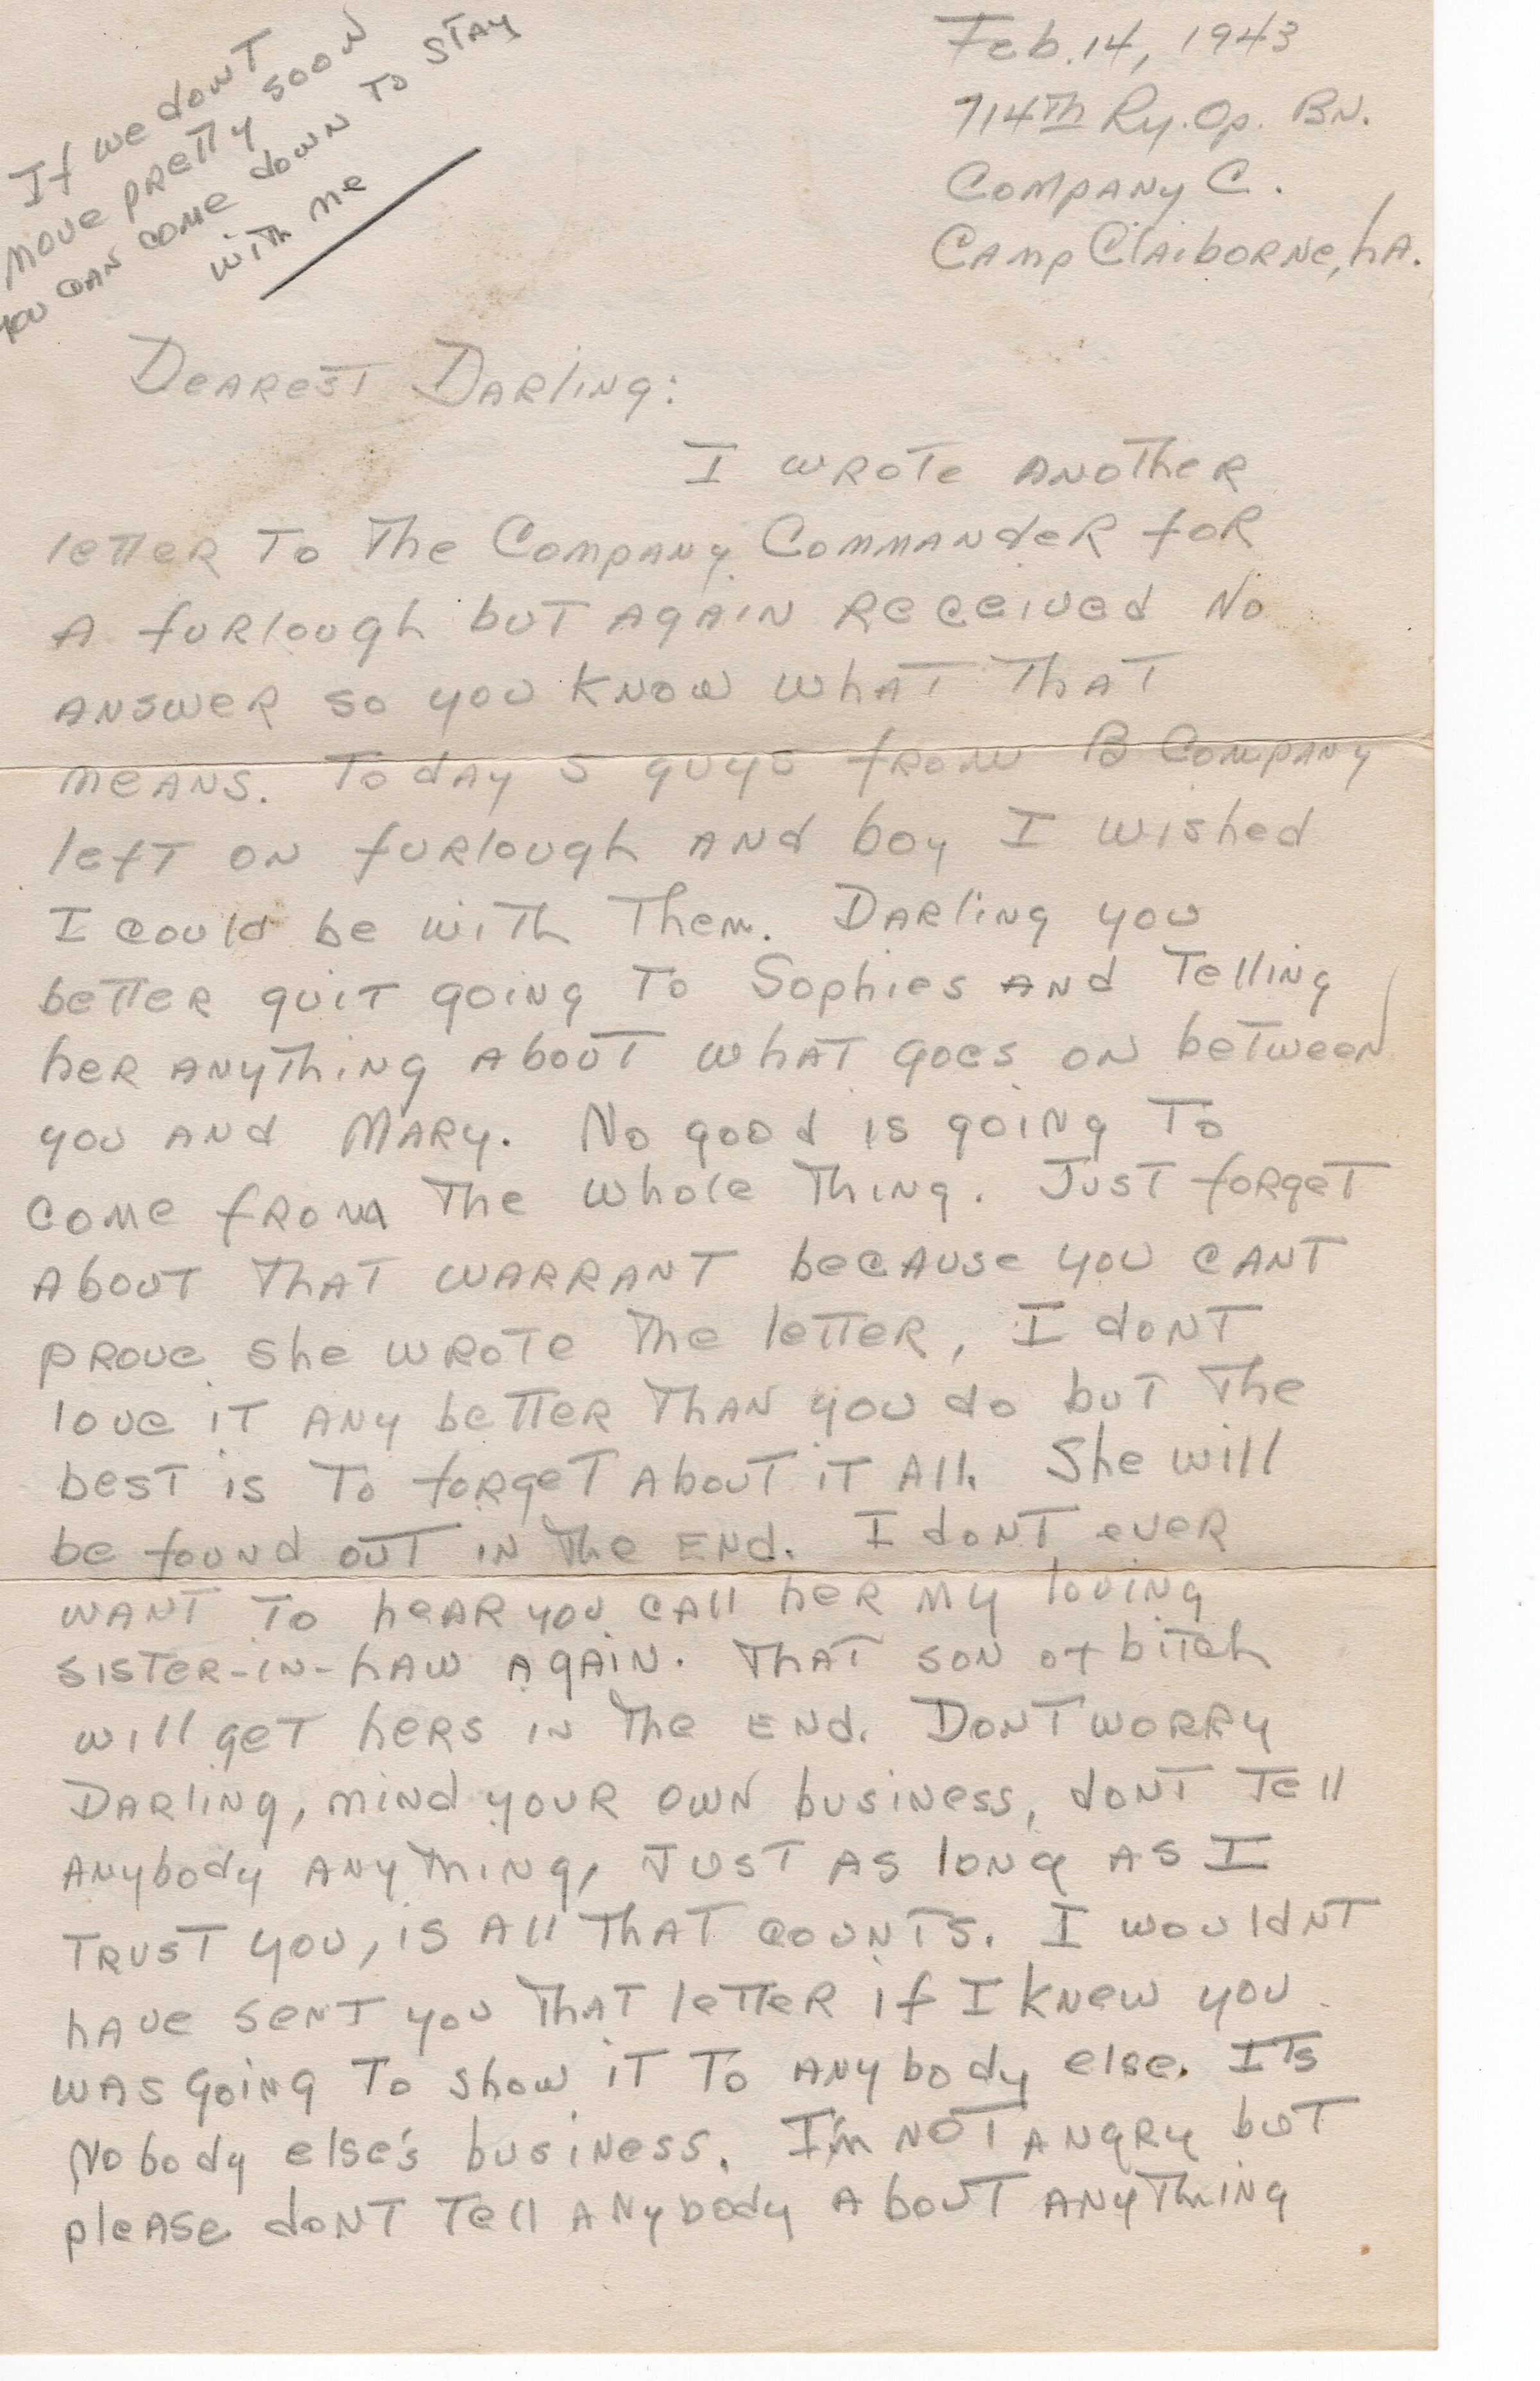 If we dont
move pretty soon
you can come down to stay
with me
Feb. 14, 1943
714th Ry. Op. Bn.
Company C.
Camp Claiborne, La.
Dearest Darling:
I wrote another
letter to the Company Commander for
a furlough but again received no
answer so you know what that
means. Today 5 guys from B Company
left on furlough and boy I wished
I could be with them. Darling you
better quit going to Sophies and telling
her anything about what goes on between
you and Mary. No good is going to
come from the whole thing. Just forget
about that warrant because you cant
prove she wrote the letter, I dont
love it any better than you do but the
best is to forget about it all. She will
be found out in the end. I dont ever
want to hear you call her my loving
sister-in-Law again. That son of bitch
will get hers in the end. Dont worry
Darling, mind your own business, dont tell
anybody anything, just as long as I
trust you, is all that counts. I wouldnt
have sent you that letter if I knew you
was going to show it to anybody else. Its
nobody else's business. I'm not angry but
please dont tell anybody about anything